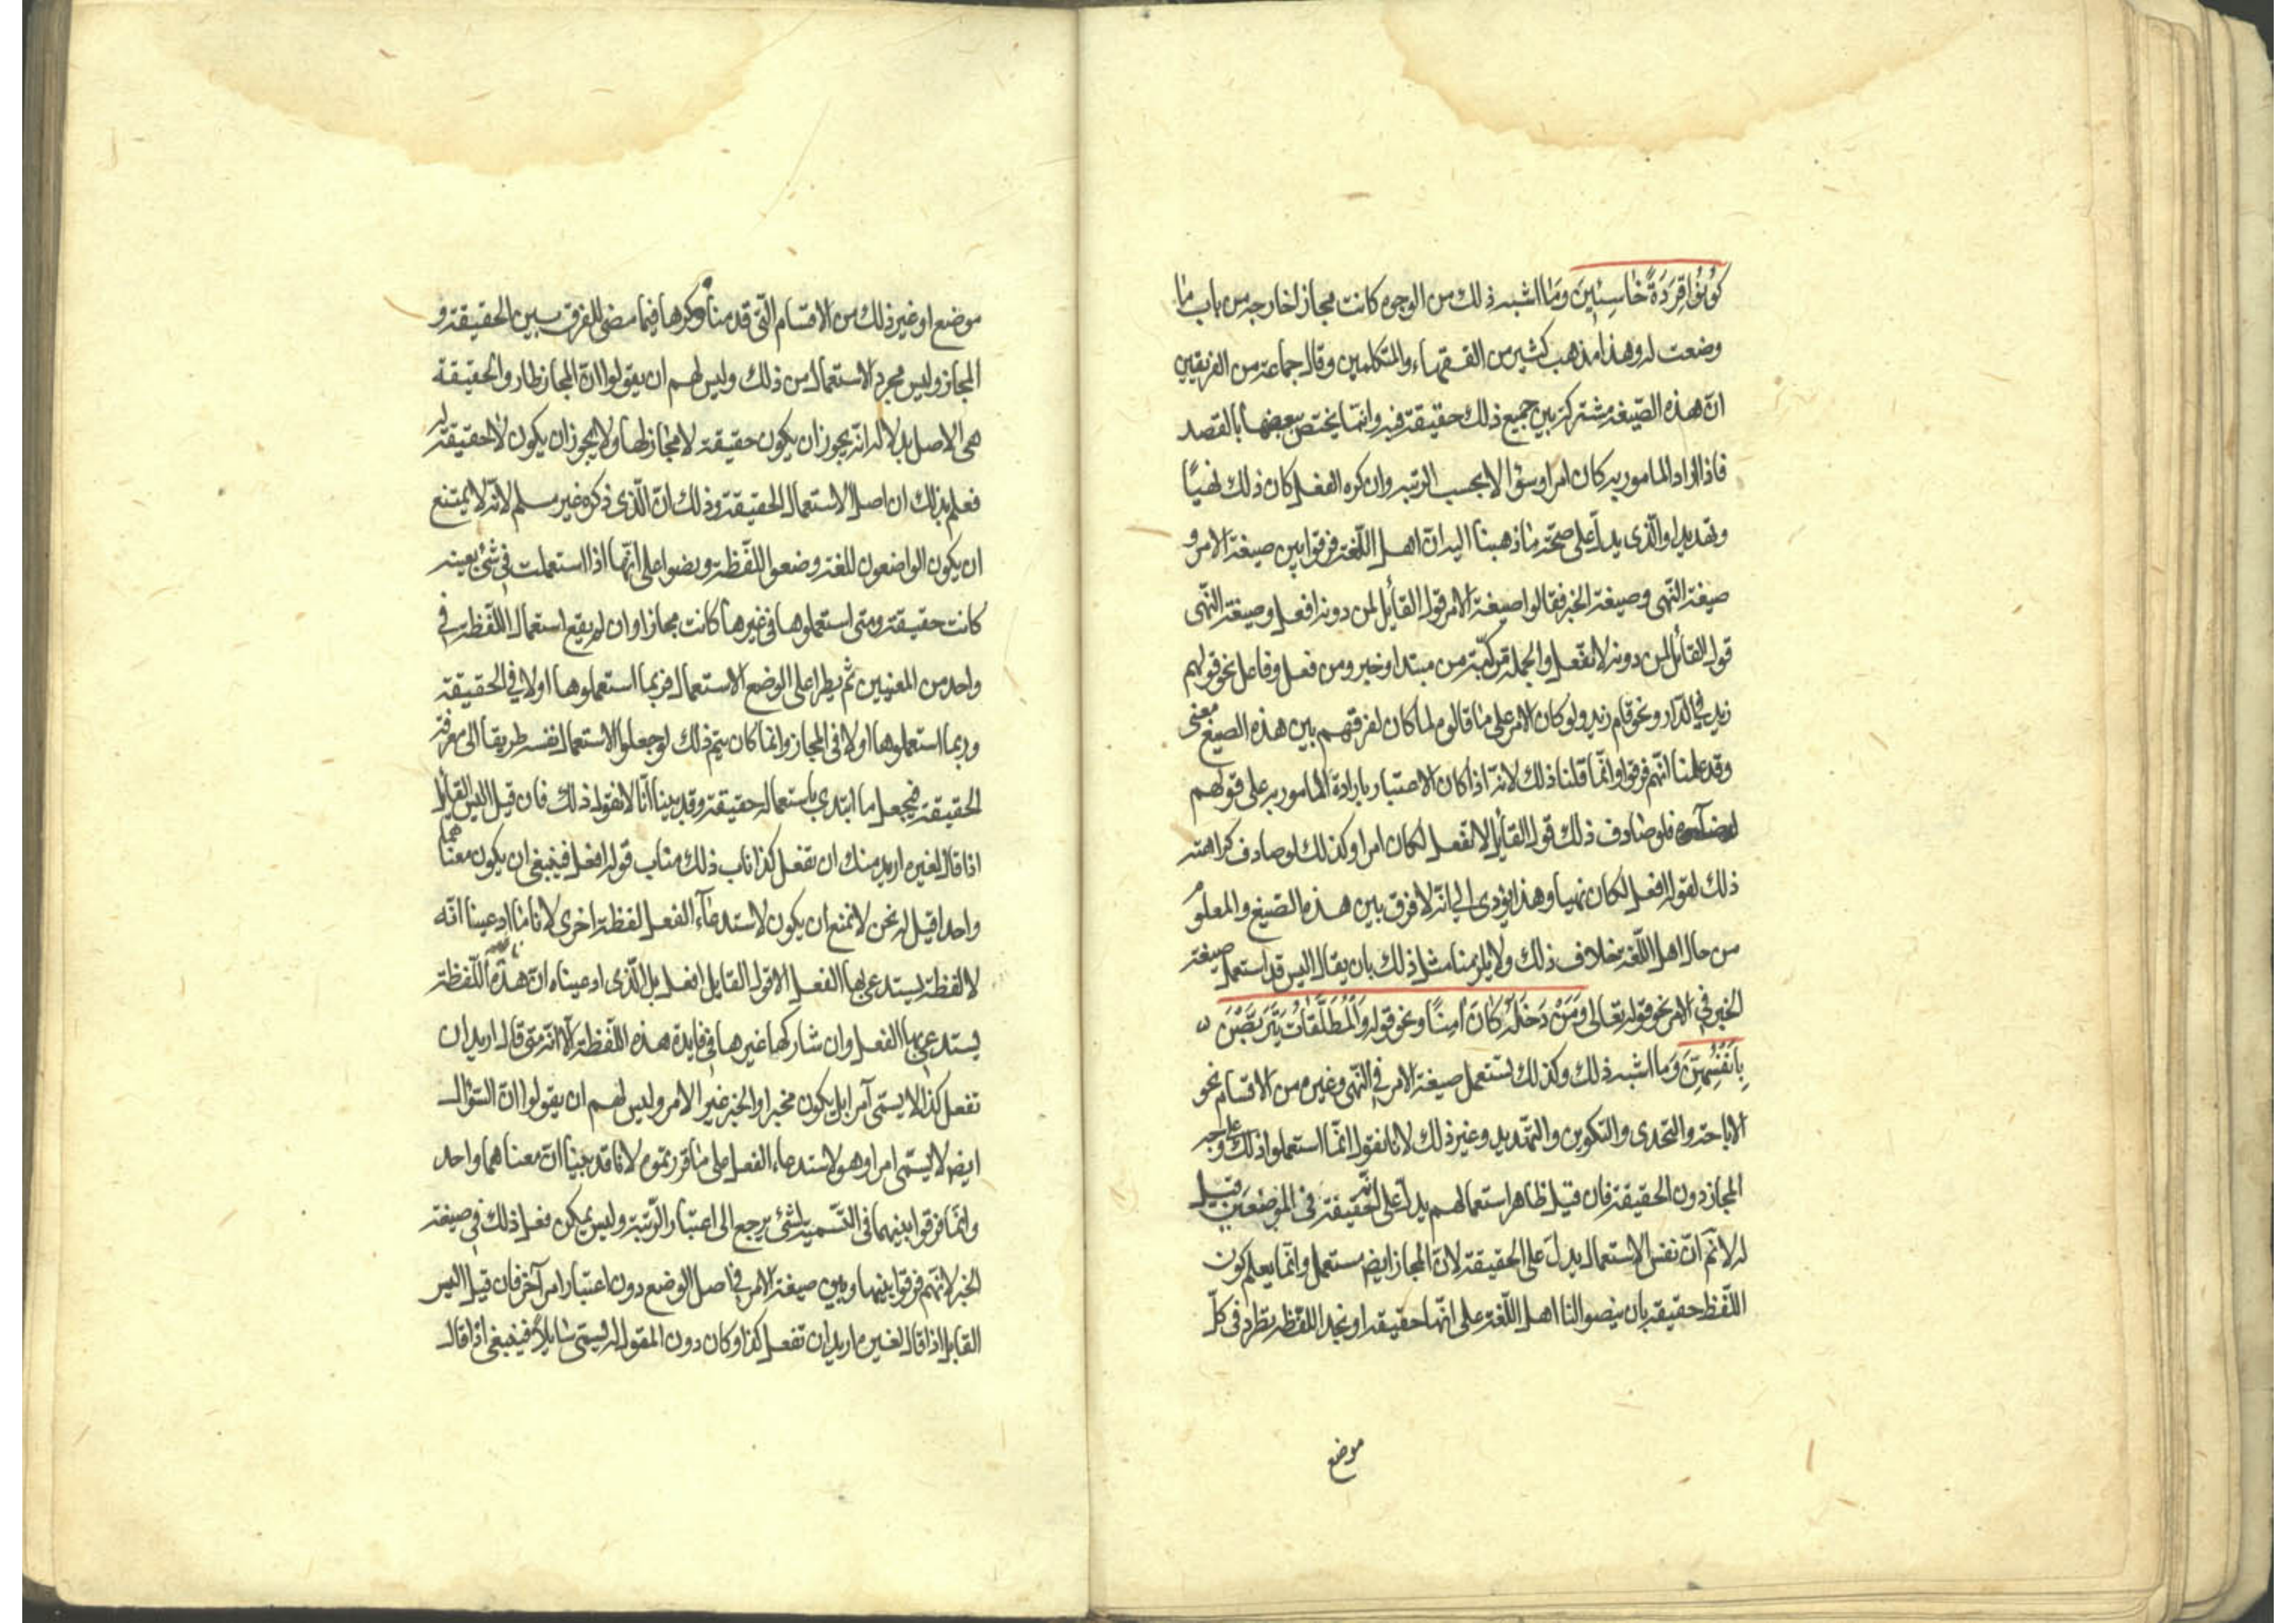 كُونُوا قِرَدَةً خَاسِئِينَ وَمَا اشبه ذلك من الوجوه كانت مجازا خارجه من باب ما
وضعت له وهذا مذهب كثير من الفقهاء والمتكلمين وقال جماعة من الفريقين
انّ هذه الصّيغه مشتركة بين جميع ذلك حقيقة فيه وانّما يختص ببعضها بالقصد
فاذا اراد المامور به كان امرا وسؤالا بحسب الرتبه وان كره الفعل كان ذلك نهيًا
وتهديدا والّذى يدلّ على صحّة ما ذهبنا اليه انّ اهل اللّغة فرقوا بين صيغة الامر و
صيغة النّهى وصيغة الخبر فقالوا صيغة الامر قول القائل لمن دونه افعل وصيغة النّهى
قول القائل لمن دونه لا تفعل والجملة مركّبة من مبتدا وخبر ومن فعل وفاعل نحو قولهم
زيد فى الدّار ونحو قام زيد ولو كان الامر على ما قالوه لما كان لفرقتهم بين هذه الصيغ معنى
وقد علمنا انّهم فرقوا وانّما قلنا ذلك لانّه اذا كان الاعتبار بارادة المامور به على قولهم
فلو صادف ذلك قول القائل لا تفعل لكان امرا وكذلك لو صادف كراهته
ذلك لقوله افعل لكان نهيا وهذا يؤدى الى انّه لا فرق بين هذه الصّيغ والمعلوم
من حال اهل اللّغة خلاف ذلك ولا يلزمنا مثل ذلك بان يقال اليس قد استعمل صيغة
الخبر فى الامر نحو قوله تعالى وَمَنْ دَخَلَهُ كَانَ آمِنًا ونحو قوله وَالْمُطَلَّقَاتُ يَتَرَبَّصْنَ
بِأَنْفُسِهِنَّ وَمَا اشبه ذلك وكذلك يستعمل صيغة الامر فى النّهى وغيره من الاقسام نحو
الاباحة والتحدى والتكوين والتهديد وغير ذلك لانا نقول انّما استعملوا ذلك على وجه
المجاز دون الحقيقة فان قيل ظاهر استعمالهم يدلّ على انّه حقيقة فى الموضعين قيل
له لا نم انّ نفس الاستعمال يدلّ على الحقيقة لانّ المجاز ايضا مستعمل وانّما يعلم كون
اللّفظ حقيقة بان ينصوا لنا اهل اللّغة على انّها حقيقة او نجد اللّفظة تطرد فى كلّ
موضع
موضع او غير ذلك من الاقسام الّتى قدمنا ذكرها فيما مضى للفرق بين الحقيقة و
المجاز وليس مجرد الاستعمال من ذلك وليس لهم ان يقولوا انّ المجاز طار والحقيقة
هى الاصل بدلالة انّه يجوز ان يكون حقيقة لا مجاز لها ولا يجوز ان يكون لا حقيقة له
فعلم بذلك ان اصل الاستعمال الحقيقة وذلك انّ الّذى ذكروه غير مسلم لانّه لا يمتنع
ان يكون الواضعون للغة وضعوا اللّفظة ونصوا على انّها اذا استعملت فى شئ بعينه
كانت حقيقة ومتى استعملوها فى غيرها كانت مجازا وان لم يقع استعمال اللّفظة فى
واحد من المعنيين ثم يطرا على الوضع الاستعمال فربما استعملوها اولا فى الحقيقة
وربما استعملوها اولا فى المجاز وانما كان يتم ذلك لو جعلوا الاستعمال نفسه طريقا الى معرفة
الحقيقة فيجعل ما ابتدى باستعماله حقيقة وقد بينا انّا لا نقول ذلك فان قيل اليس القائل
اذا قال لغيره اريد منك ان تفعل كذا ناب ذلك مناب قوله افعل فينبغى ان يكون معناهما
واحدا قيل له نحن لا نمنع ان يكون لاستدعاء الفعل لفظة اخرى لانا ما ادعينا انّه
لا لفظة يستدعى بها الفعل الا قول القايل افعل بل الّذى ادعيناه انّ هذه اللّفظة
يستدعى بها الفعل وان شاركها غيرها فى فايدة هذه اللّفظة الّا انّه متى قال اريد ان
تفعل كذا لا يسمّى آمرا بل يكون مخبرا والخبر غير الامر وليس لهم ان يقولوا انّ السّؤال
ايضا لا يسمّى امرا وهو لاستدعاء الفعل على ما قررتموه لانا قد بينا انّ معناهما واحد
وانّما فرقوا بينهما فى التّسمية لشئ يرجع الى اعتبار الرّتبة وليس يمكن فعل ذلك فى صيغة
الخبر لانّهم فرقوا بينها وبين صيغة الامر فى اصل الوضع دون اعتبار امر آخر فان قيل اليس
القايل اذا قال لغيره اريد ان تفعل كذا وكان دون المقول له يسمّى سايلاً فينبغى اذا قال